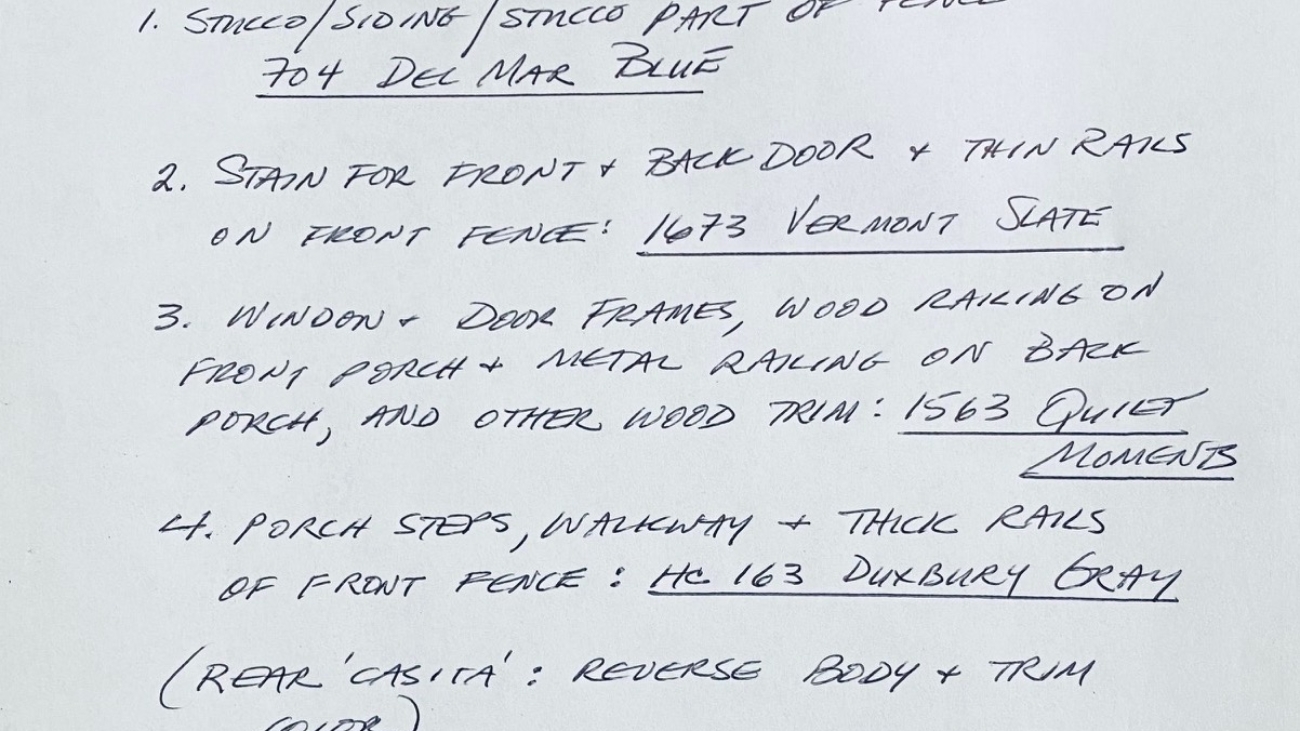 1. STUCCO/SIDING/STUCCO PART OF FENCE
704 DEL MAR BLUE
2. STAIN FOR FRONT + BACK DOOR + THIN RAILS
ON FRONT FENCE: 1673 VERMONT SLATE
3. WINDOW + DOOR FRAMES, WOOD RAILING ON
FRONT PORCH + METAL RAILING ON BACK
PORCH, AND OTHER WOOD TRIM: 1563 QUIET
MOMENTS
4. PORCH STEPS, WALKWAY + THICK RAILS
OF FRONT FENCE: HC 163 DUXBURY GRAY
(REAR 'CASITA': REVERSE BODY + TRIM
COLOR)